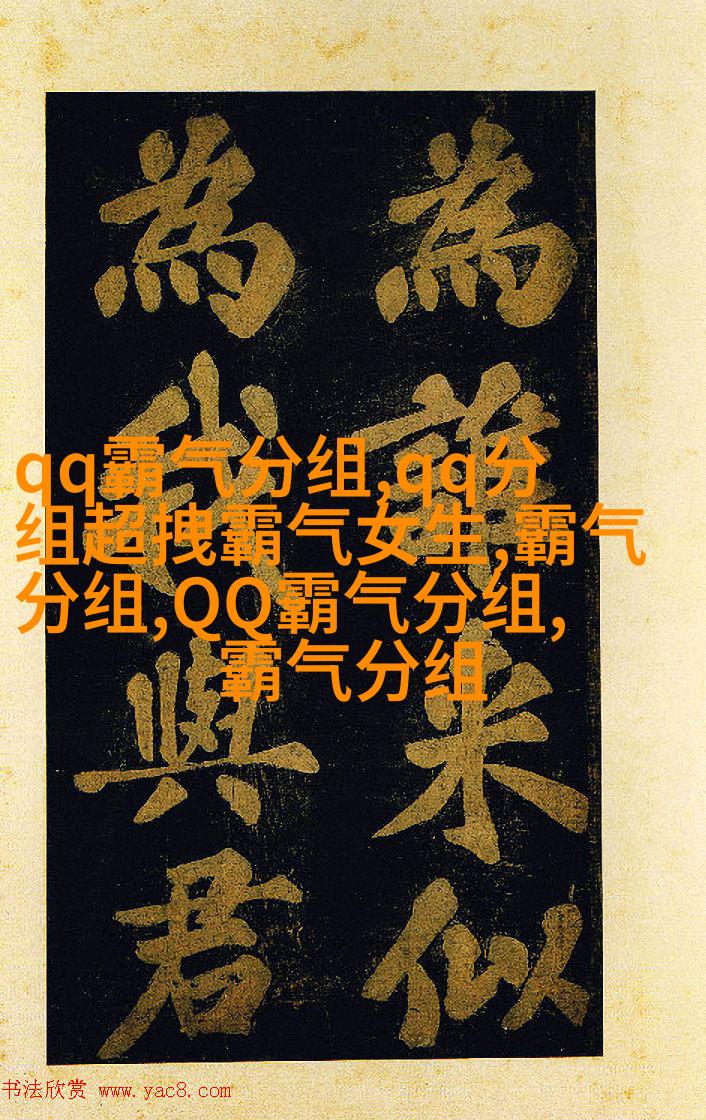 為誰来似
為我與君
qq霸气分组,qq分
组超拽霸气女生,霸气
分组,QQ霸气分组,
霸气分组
书法欣赏 www.yac8.com